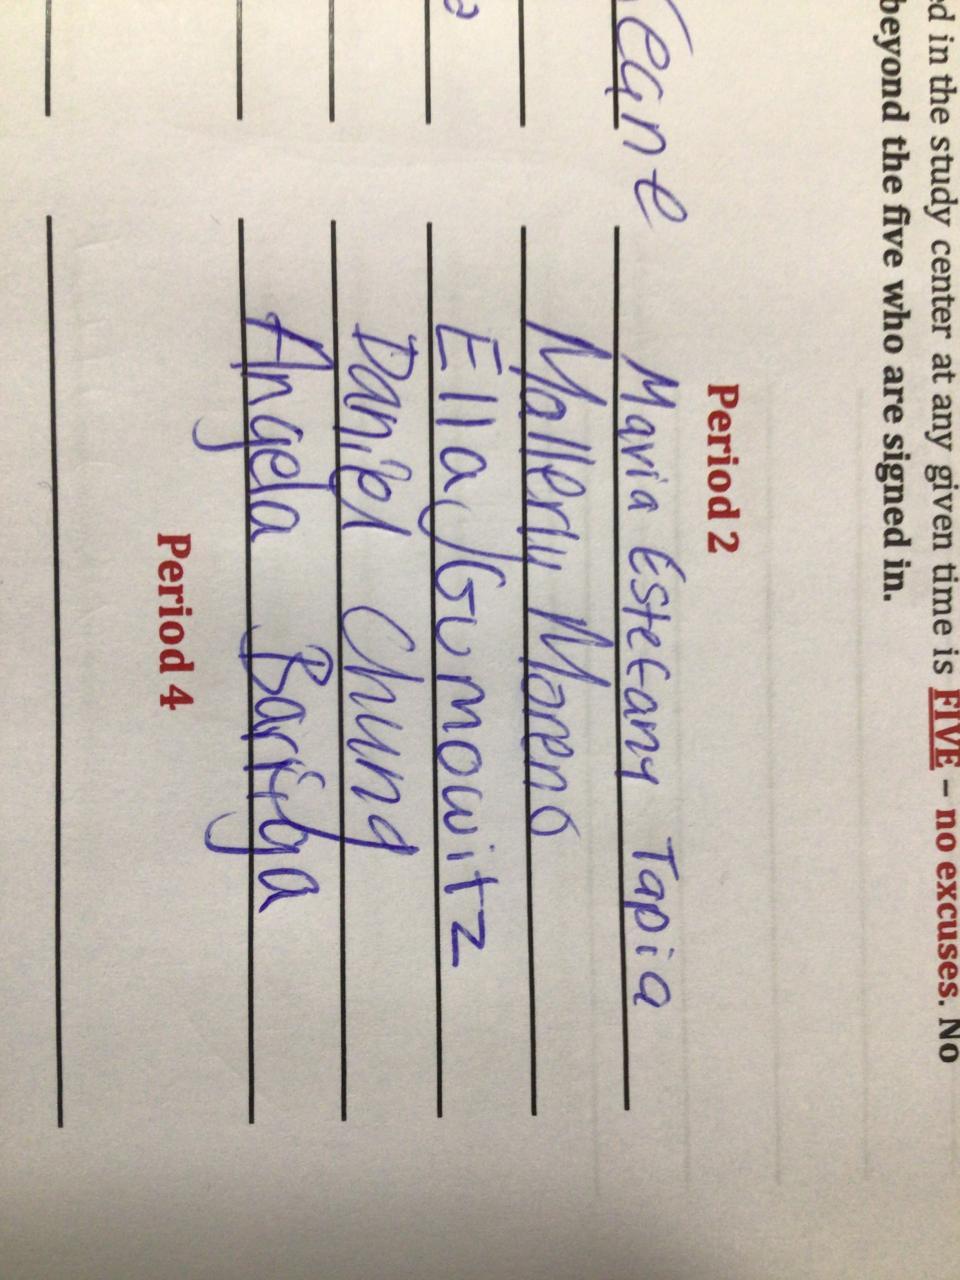 ed in the study center at any given time is FIVE – no excuses. No
beyond the five who are signed in.
Period 2
Maria Estefany Tapia
Mallerly Moreno
Ella Gumowitz
Daniel Chung
Angela Bariga
Period 4